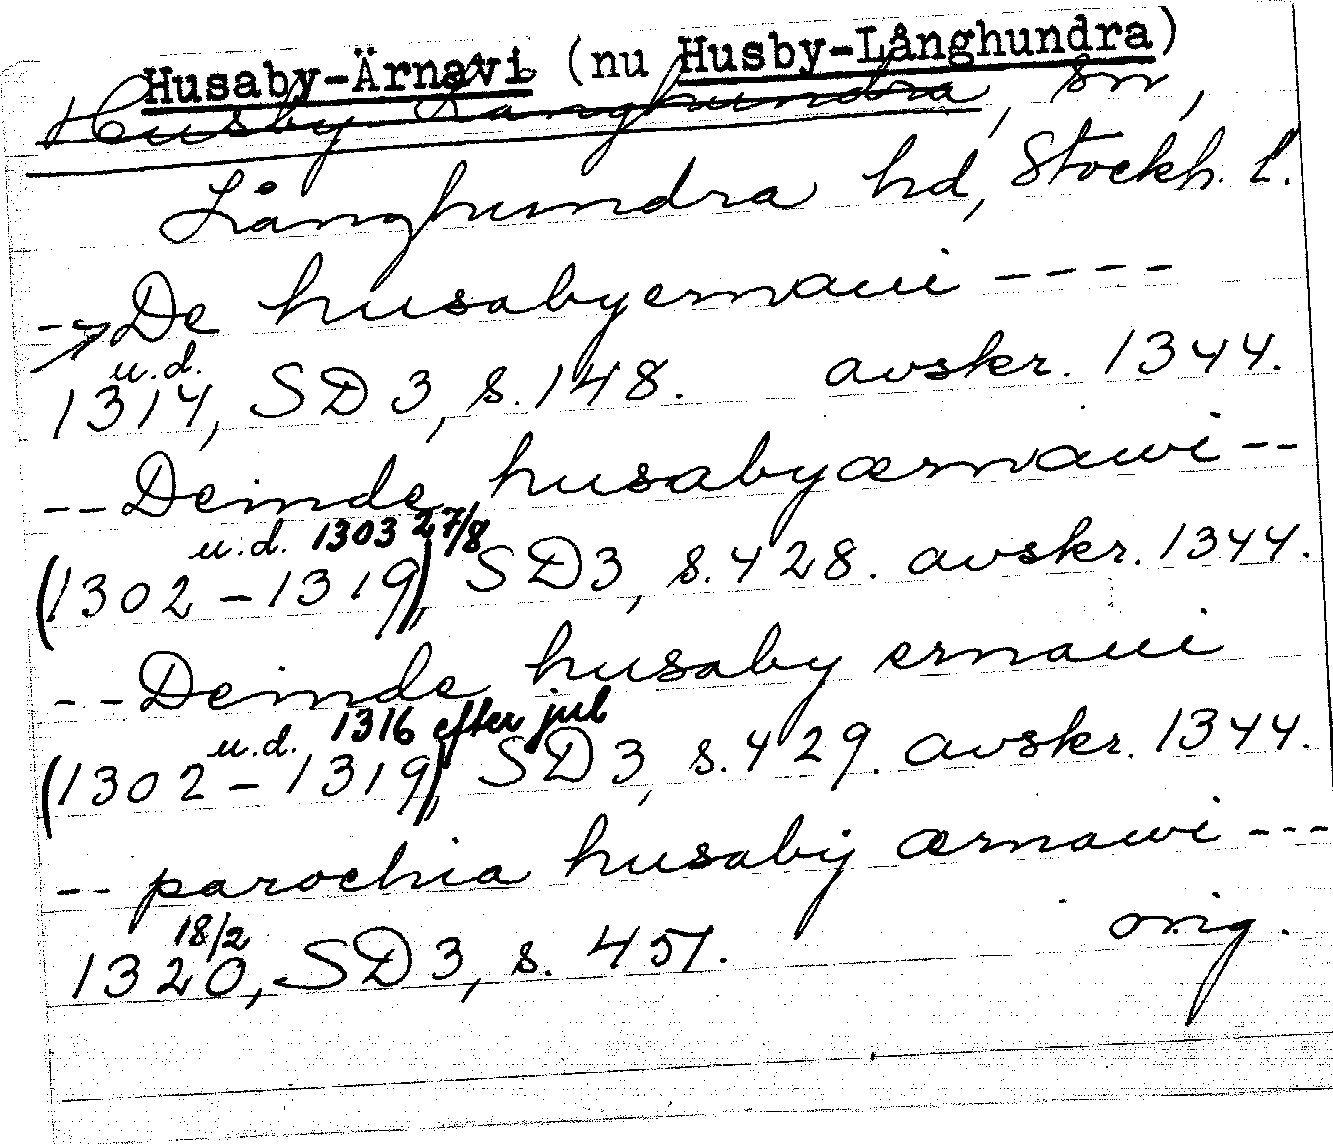 Husaby-Ärnavi (nu Husby-Långhundra)
Husby Långhundra, sn,
Långhundra hd, Stockh. l.
-- De husabyernaui ----
u.d.
1314, SD 3, s. 148. avskr. 1344.
-- Deinde husabyærnawi --
u.d. 1303 27/8
(1302-1319), SD 3, s. 428. avskr. 1344.
-- Deinde husaby ernaui
u.d. 1316 efter jul
(1302-1319), SD 3, s. 429. avskr. 1344.
-- parochia husaby ærnawi ---
18/2
1320, SD 3, s. 451. orig.